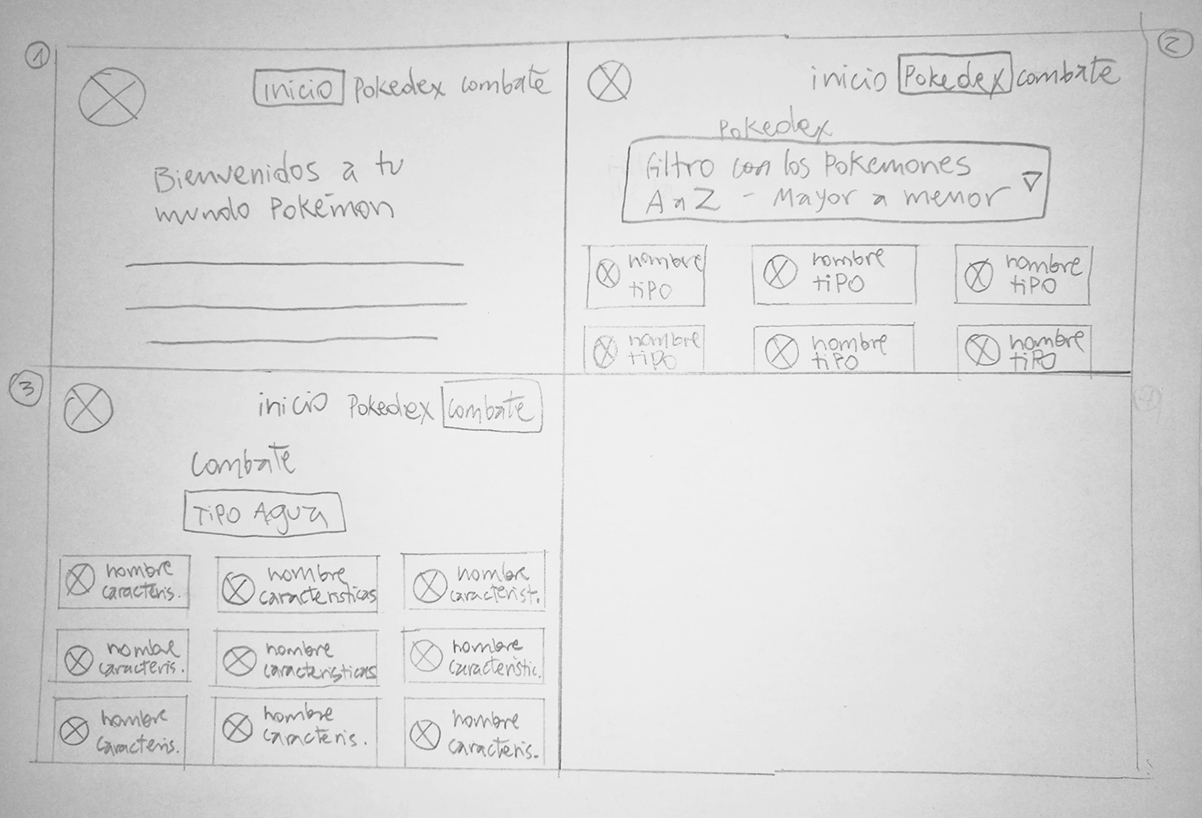 1
inicio Pokedex combate
Bienvenidos a tu
mundo Pokémon
2
inicio Pokedex combate
Pokedex
Filtro con los Pokemones
A a Z - Mayor a menor
nombre
tipo
nombre
tipo
nombre
tipo
nombre
tipo
nombre
tipo
nombre
tipo
3
inicio Pokedex combate
Combate
Tipo Agua
nombre
caracteris.
nombre
caracteristicas
nombre
caracterist.
nombre
caracteris.
nombre
caracteristicas
nombre
caracteristic.
nombre
caracteris.
nombre
caracteris.
nombre
caracteris.
4